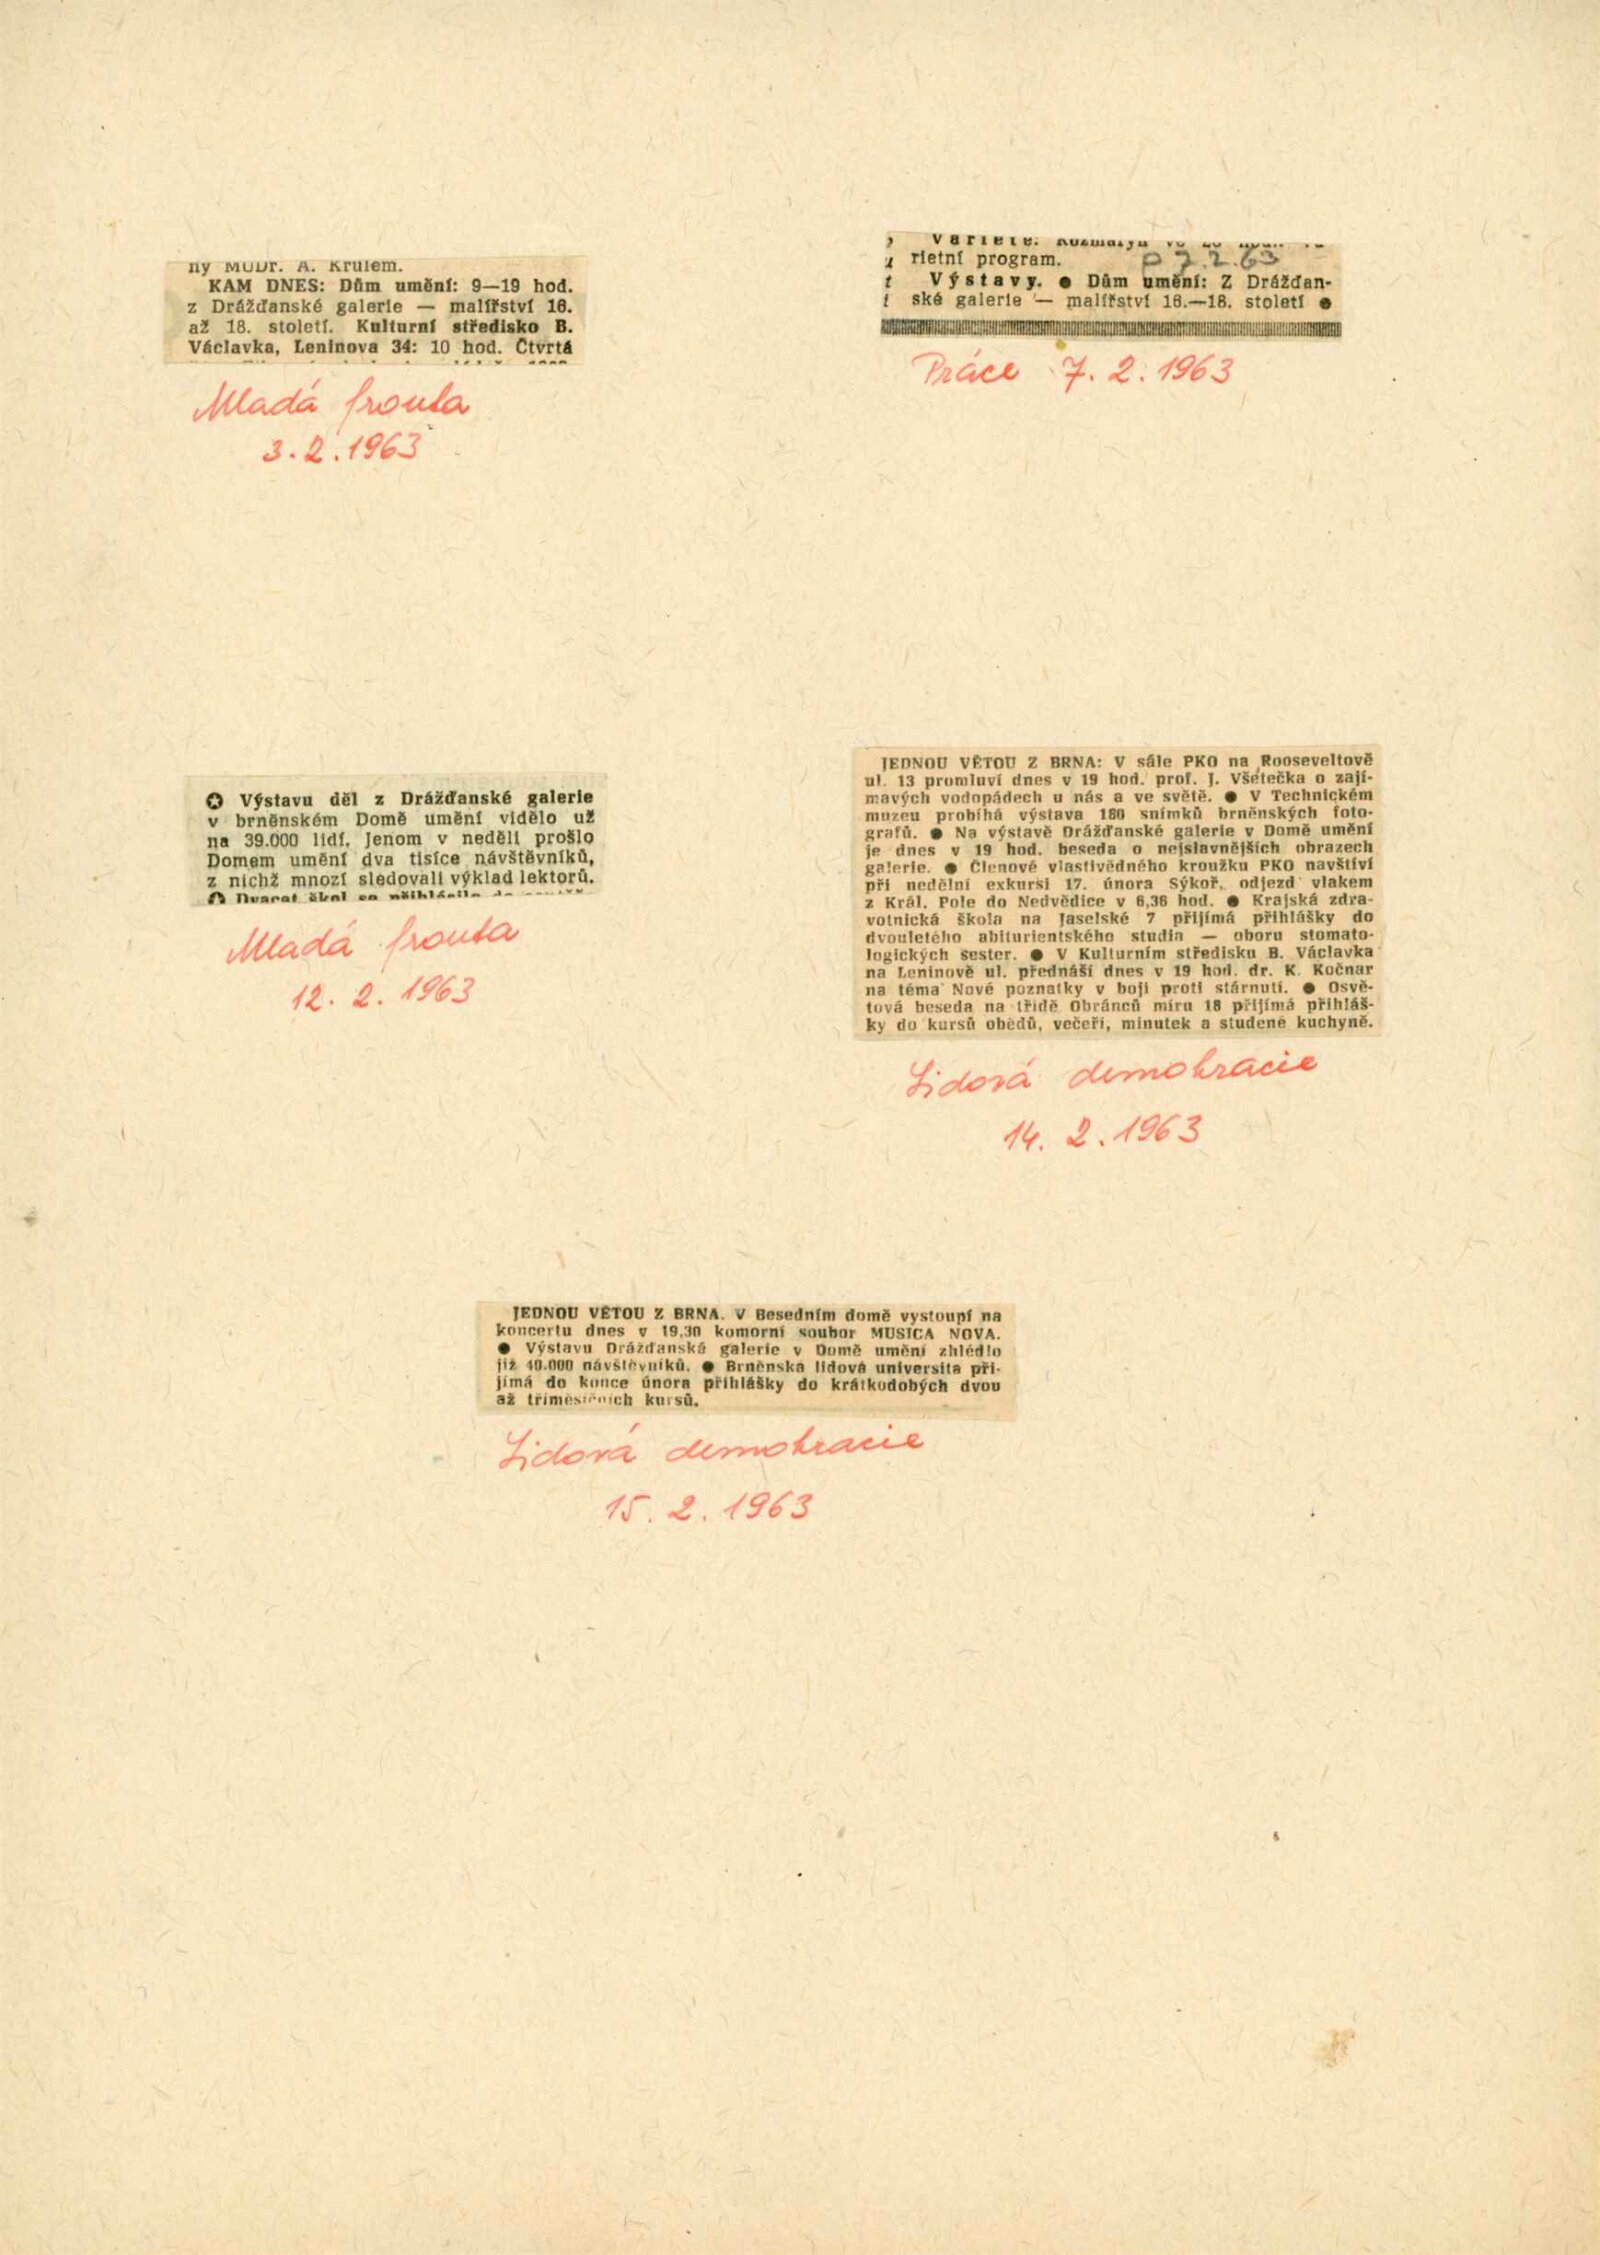 ny MUDr. A. Krulem.
KAM DNES: Dům umění: 9—19 hod.
z Drážďanské galerie — malířství 16.
až 18. století. Kulturní středisko B.
Václavka, Leninova 34: 10 hod. Čtvrtá
Mladá fronta
3. 2. 1963
Variete. Rozmarýn
rietní program.
P 7.2.63
Výstavy. ● Dům umění: Z Drážďan-
ské galerie — malířství 16.—18. století ●
Práce 7. 2. 1963
✪ Výstavu děl z Drážďanské galerie
v brněnském Domě umění vidělo už
na 39.000 lidí. Jenom v neděli prošlo
Domem umění dva tisíce návštěvníků,
z nichž mnozí sledovali výklad lektorů.
✪ Dvacet škol se přihlásilo do
Mladá fronta
12. 2. 1963
JEDNOU VĚTOU Z BRNA: V sále PKO na Rooseveltově
ul. 13 promluví dnes v 19 hod. prof. J. Všetečka o zají-
mavých vodopádech u nás a ve světě. ● V Technickém
muzeu probíhá výstava 180 snímků brněnských foto-
grafů. ● Na výstavě Drážďanské galerie v Domě umění
je dnes v 19 hod. beseda o nejslavnějších obrazech
galerie. ● Členové vlastivědného kroužku PKO navštíví
při nedělní exkursi 17. února Sýkoř, odjezd vlakem
z Král. Pole do Nedvědice v 6,36 hod. ● Krajská zdra-
votnická škola na Jaselské 7 přijímá přihlášky do
dvouletého abiturientského studia — oboru stomato-
logických sester. ● V Kulturním středisku B. Václavka
na Leninově ul. přednáší dnes v 19 hod. dr. K. Kočnar
na téma Nové poznatky v boji proti stárnutí. ● Osvě-
tová beseda na třídě Obránců míru 18 přijímá přihláš-
ky do kursů obědů, večeří, minutek a studené kuchyně.
Lidová demokracie
14. 2. 1963
JEDNOU VĚTOU Z BRNA. V Besedním domě vystoupí na
koncertu dnes v 19,30 komorní soubor MUSICA NOVA.
● Výstavu Drážďanská galerie v Domě umění zhlédlo
již 40.000 návštěvníků. ● Brněnská lidová universita při-
jímá do konce února přihlášky do krátkodobých dvou
až tříměsíčních kursů.
Lidová demokracie
15. 2. 1963